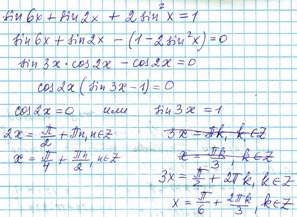 sin6x + sin2x + 2sin²x = 1
sin6x + sin2x - (1 - 2sin²x) = 0
sin3x · cos2x - cos2x = 0
cos2x (sin3x - 1) = 0
cos2x = 0 или sin3x = 1
2x = π/2 + πn, n∈Z 3x = πk, k∈Z
x = π/4 + πn/2, n∈Z x = πk/3, k∈Z
3x = π/2 + 2πk, k∈Z
x = π/6 + 2πk/3, k∈Z